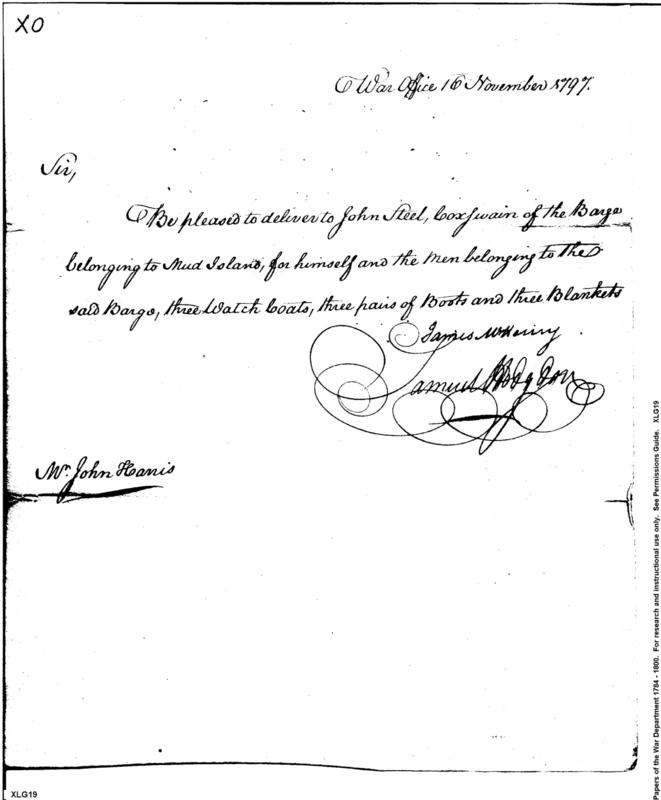 XO
War Office 16 November 1797.
Sir,
Be pleased to deliver to John Steel, Coxswain of the Barge
belonging to Mud Island, for himself and the men belonging to the
said Barge, three Watch Coats, three pairs of Boots and three Blankets
James McHenry
Samuel Hodgdon
Mr. John Harris
Papers of the War Department 1784 - 1800. For research and instructional use only. See Permissions Guide. XLG19
XLG19